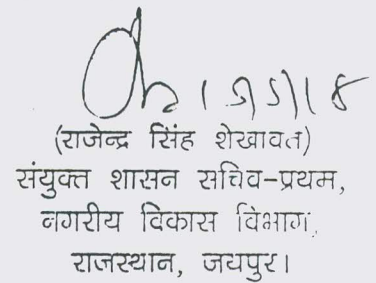 (राजेन्द्र सिंह शेखावत)
संयुक्त शासन सचिव-प्रथम,
नगरीय विकास विभाग,
राजस्थान, जयपुर।